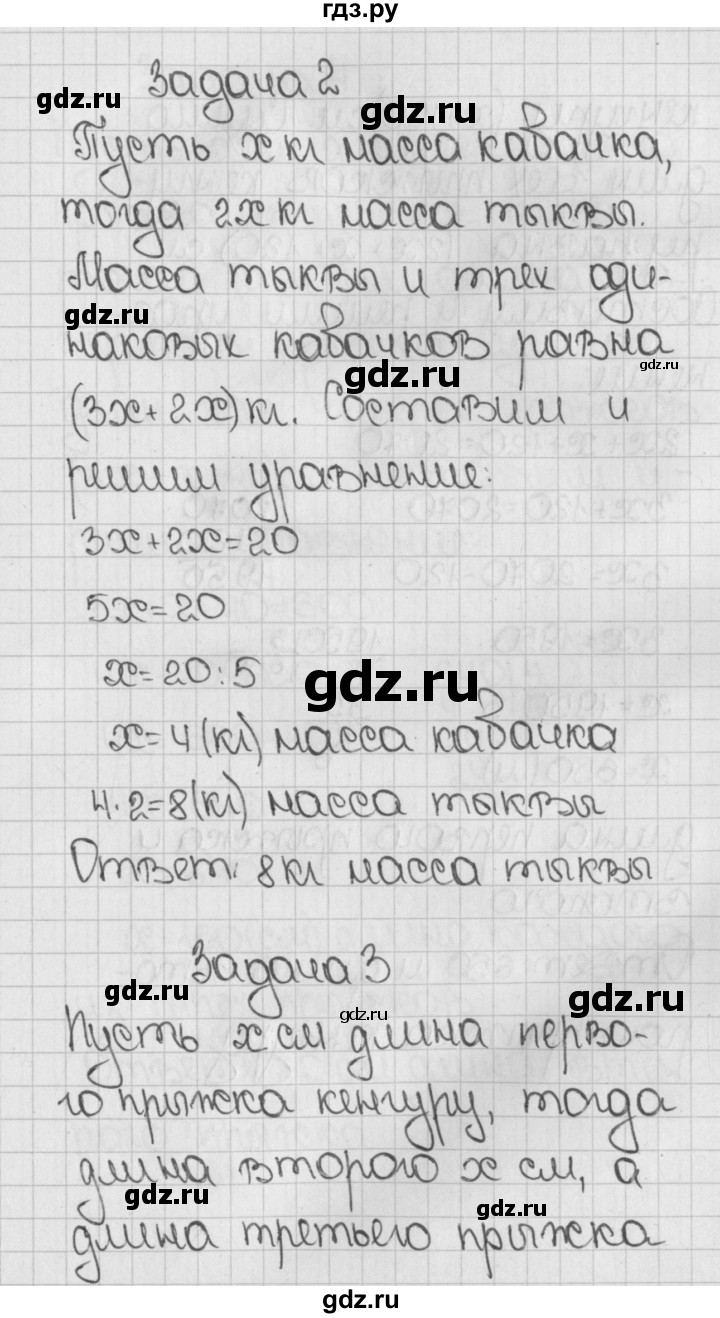 гдз.ру
Задача 2
gdz.ru
gdz.ru
Пусть х кг масса кабачка,
тогда 2х кг масса тыквы.
Масса тыквы и трех оди-
gdz.ru
наковых кабачков равна
gdz.ru
gdz.ru
(3х+2х)кг. Составим и
решим уравнение:
3х+2х=20
5х=20
х=20:5
gdz.ru
х=4(кг) масса кабачка
4·2=8(кг) масса тыквы
Ответ: 8кг масса тыквы
Задача 3
gdz.ru
gdz.ru
gdz.ru
Пусть х см длина перво-
го прыжка кенгуру, тогда
длина второго х см, а
gdz.ru
gdz.ru
длина третьего прыжка
gdz.ru